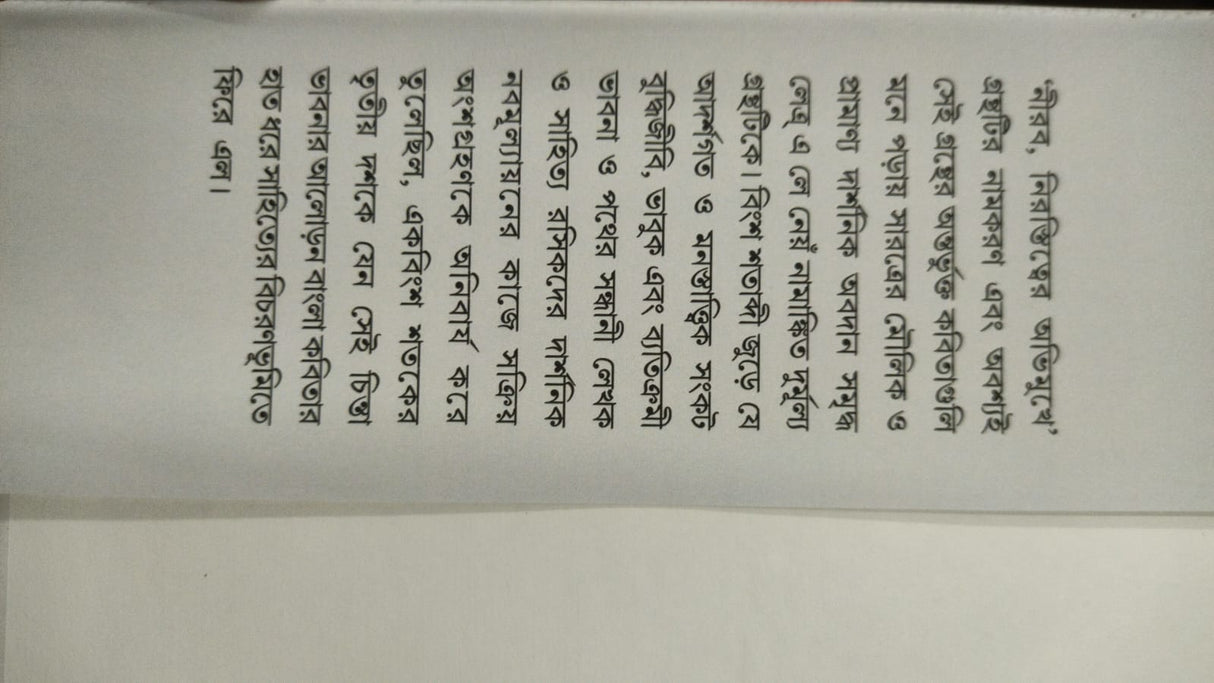 ‘নীরব, নিরস্তিত্বের অভিমুখে’
গ্রন্থটির নামকরণ এবং অবশ্যই
সেই গ্রন্থের অন্তর্ভুক্ত কবিতাগুলি
মনে পড়ায় সারত্রের মৌলিক ও
প্রামাণ্য দার্শনিক অবদান সমৃদ্ধ
লেত্র্ এ লে নেয়ঁ নামাঙ্কিত দুর্মূল্য
গ্রন্থটিকে। বিংশ শতাব্দী জুড়ে যে
আদর্শগত ও মনস্তাত্ত্বিক সংকট
বুদ্ধিজীবি, ভাবুক এবং ব্যতিক্রমী
ভাবনা ও পথের সন্ধানী লেখক
ও সাহিত্য রসিকদের দার্শনিক
নবমূল্যায়নের কাজে সক্রিয়
অংশগ্রহণকে অনিবার্য করে
তুলেছিল, একবিংশ শতকের
তৃতীয় দশকে যেন সেই চিন্তা
ভাবনার আলোড়ন বাংলা কবিতার
হাত ধরে সাহিত্যের বিচরণভূমিতে
ফিরে এল।